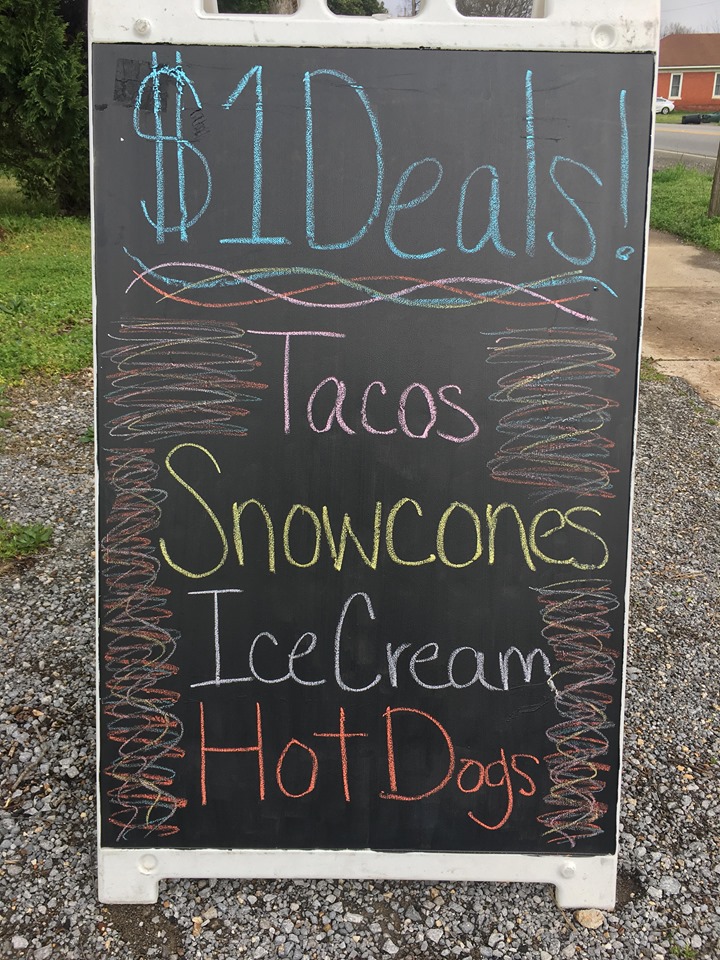 $1 Deals!
Tacos
Snowcones
Ice Cream
Hot Dogs